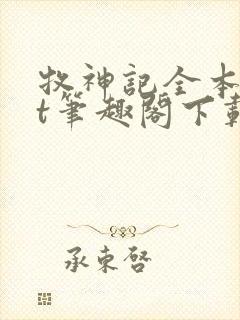 牧神記全本
t筆趣閣下載
承東啓